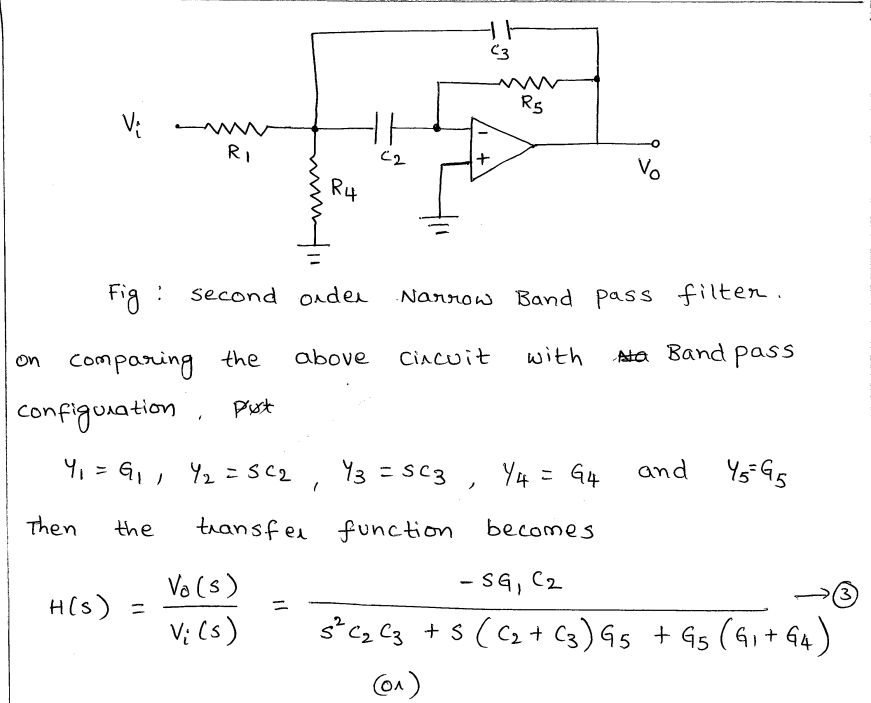 C3
R5
Vi
R1
C2
R4
-
+
Vo
Fig : second order Narrow Band pass filter.
on comparing the above circuit with Band pass
configuration, Put
Y1 = G1, Y2 = SC2, Y3 = SC3, Y4 = G4 and Y5=G5
Then the transfer function becomes
H(s) = Vo(s) / Vi(s) = - SG1 C2 / s² C2 C3 + s (C2 + C3) G5 + G5 (G1 + G4) → ③
(or)